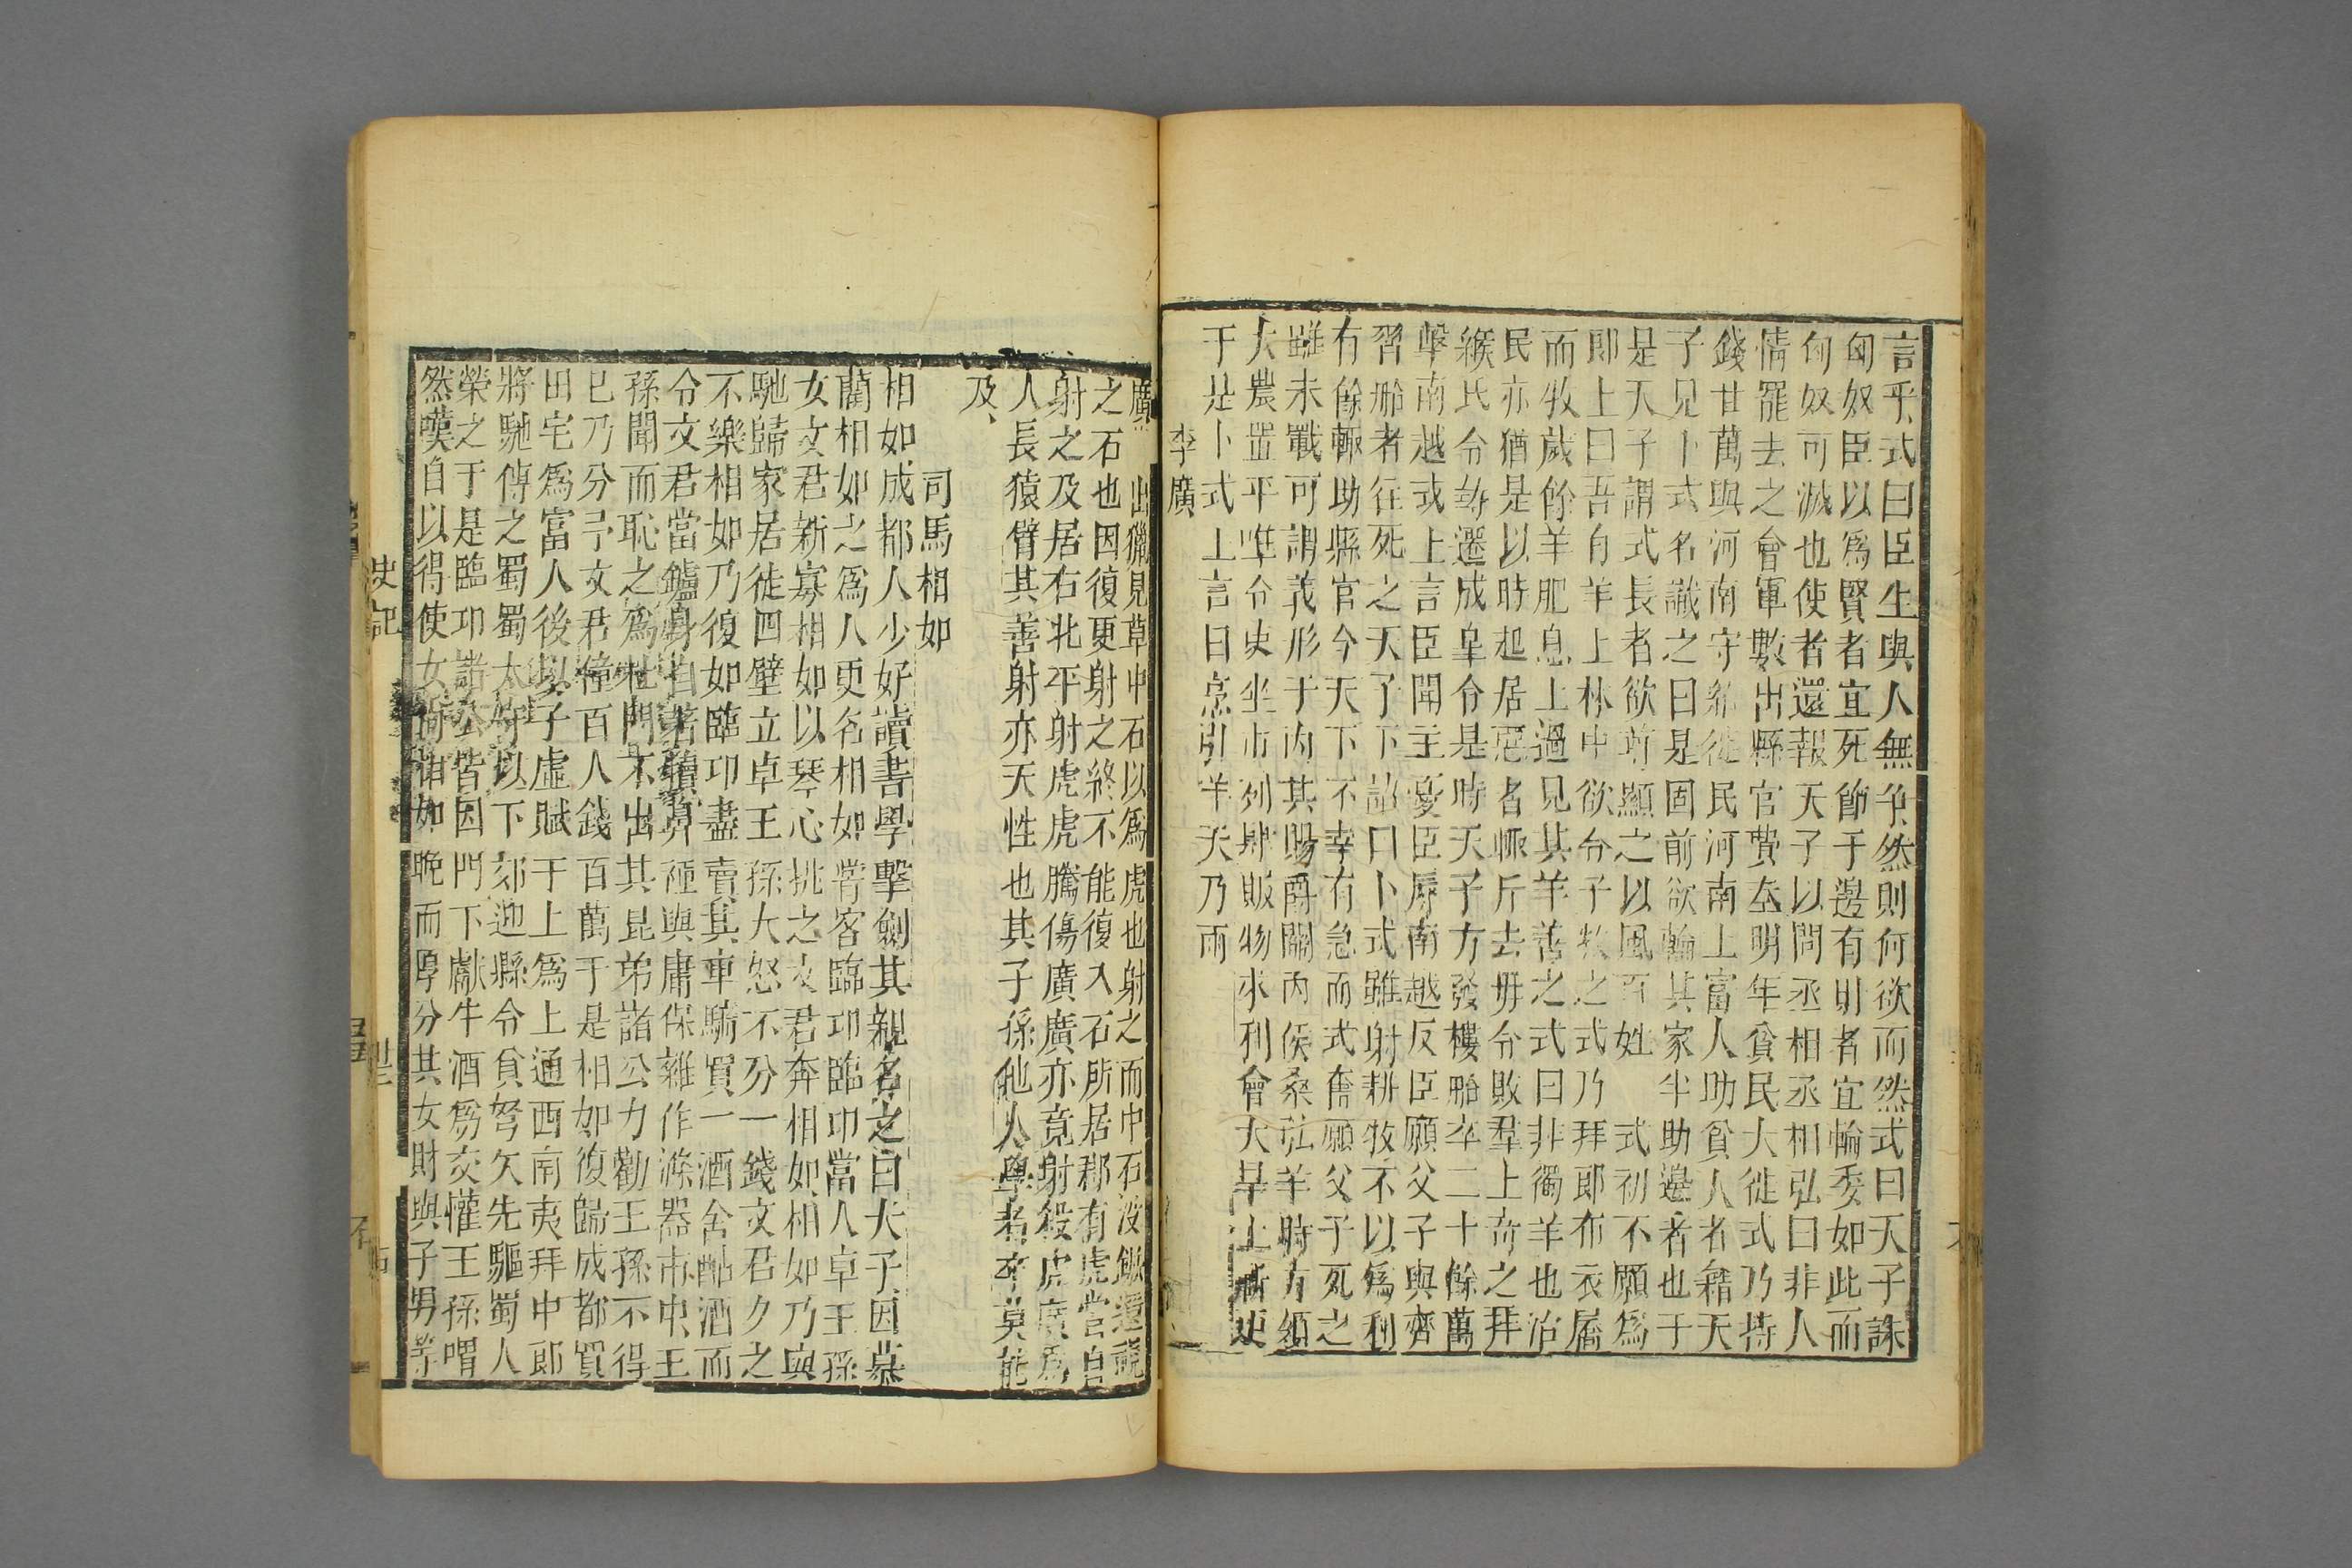 言乎式曰臣生與人無爭然則何欲而然式曰天子誅
匈奴臣以爲賢者宜死節于邊有財者宜輸委如此而
匈奴可滅也使者還報天子以問丞相丞相弘曰非人
情罷去之會軍數出縣官費空明年貧民大徙式乃持
錢廿萬與河南守給徙民河南上富人助貧人者籍天
子見卜式名識之曰是固前欲輸其家半助邊者也于
是天子謂式長者欲尊顯之以風百姓 式初不願爲
郎上曰吾有羊上林中欲令子牧之式乃拜郎布衣屩
而牧歲餘羊肥息上過見其羊善之式曰非獨羊也治
民亦猶是以時起居惡者輒斥去毋令敗群上奇之拜
緱氏令
遷成皐令是時天子方發樓船卒二十餘萬
擊南越或上言臣聞主憂臣辱南越反臣願父子與齊
習船者往死之天子下詔曰卜式雖躬耕牧不以爲利
有餘輒助縣官今天下不幸有急而式奮願父子死之
雖未戰可謂義形于內其賜爵關內侯桑弘羊時方領
大農置平準令吏坐市列肆販物求利會大旱上
于是卜式上言曰烹弘羊天乃雨
李廣
廣 出獵見草中石以爲虎也射之而中石沒鏃還視
之石也因復更射之終不能復入石所居郡有虎嘗自
射之及居右北平射虎虎騰傷廣廣亦竟射殺虎廣爲
人長猿臂其善射亦天性也其子孫他人學者卒莫能
及
司馬相如
相如成都人少好讀書學擊劍其親名之曰犬子因慕
藺相如之爲人更名相如嘗客臨邛臨邛富人卓王孫
女文君新寡相如以琴心挑之文君奔相如相如乃與
馳歸家居徒四壁立卓王孫大怒不分一錢文君久之
不樂相如乃復如臨邛盡賣其車騎買一酒舍酤酒而
令文君當鑪身自著犢鼻褌與庸保雜作滌器市中王
孫聞而恥之爲杜門不出其昆弟諸公力勸王孫不得
已乃分予文君僮百人錢百萬于是相如復歸成都買
田宅爲富人後以子虛賦于上爲上通西南夷拜中郎
將馳傳之蜀蜀太守以下郊迎縣令負弩矢先驅蜀人
榮之于是臨邛諸公皆因門下獻牛酒爲交懽王孫喟
然嘆自以得使女尚相如晚而厚分其女財與子男等
史記